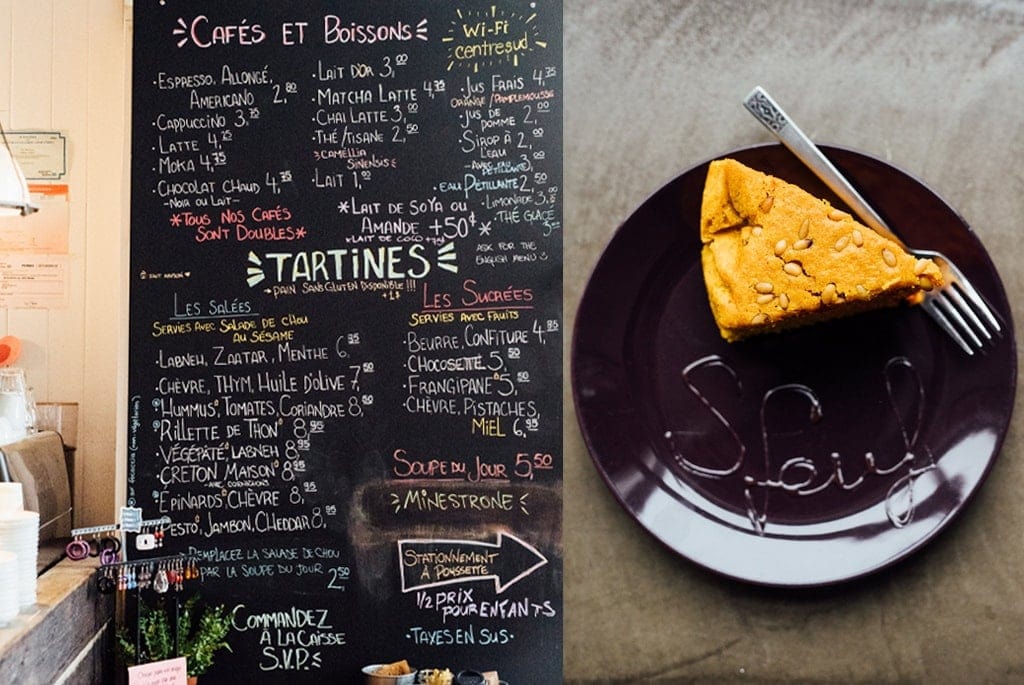 CAFÉS ET BOISSONS
WI-FI
centresud
·ESPRESSO, ALLONGÉ,
AMERICANO 2,80
·CAPPUCCINO 3,75
·LATTE 4,25
·MOKA 4,75
·CHOCOLAT CHAUD 4,75
-NOIR OU LAIT-
*TOUS NOS CAFÉS
SONT DOUBLES*
·LAIT D'OR 3,00
·MATCHA LATTE 4,75
·CHAI LATTE 3,00
·THÉ/TISANE 2,50
CAMÉLLIA
SINENSUS
·LAIT 1,00
*LAIT DE SOYA OU
AMANDE +50¢*
·JUS FRAIS 4,75
ORANGE/PAMPLEMOUSSE
·JUS DE
POMME 2,00
·SIROP À
L'EAU 2,00
-AVEC EAU 3,00
PÉTILLANTE
·EAU PÉTILLANTE 2,50
·LIMONADE 3,00
·THÉ GLACÉ
ASK FOR THE
ENGLISH MENU
TARTINES
→ PAIN SANS GLUTEN DISPONIBLE!!!
+1$
LES SALÉES
SERVIES AVEC SALADE DE CHOU
AU SÉSAME
·LABNEH, ZAATAR, MENTHE 6,95
·CHÈVRE, THYM, HUILE D'OLIVE 7,50
·HUMMUS, TOMATES, CORIANDRE 8,50
·RILLETTE DE THON 8,95
·VÉGÉPÂTÉ, LABNEH 8,95
·CRETON MAISON 8,95
-AVEC CORNICHONS
·ÉPINARDS, CHÈVRE 8,95
PESTO, JAMBON, CHEDDAR 8,95
→ REMPLACEZ LA SALADE DE CHOU
PAR LA SOUPE DU JOUR 2,50
COMMANDEZ
À LA CAISSE
S.V.P.
LES SUCRÉES
SERVIES AVEC FRUITS
·BEURRE, CONFITURE 4,95
·CHOCOSETTE 5,50
·FRANGIPANE 5,50
·CHÈVRE, PISTACHES,
MIEL 6,95
SOUPE DU JOUR 5,50
MINESTRONE
STATIONNEMENT
À POUSSETTE
1/2 PRIX
POUR ENFANTS
·TAXES EN SUS·